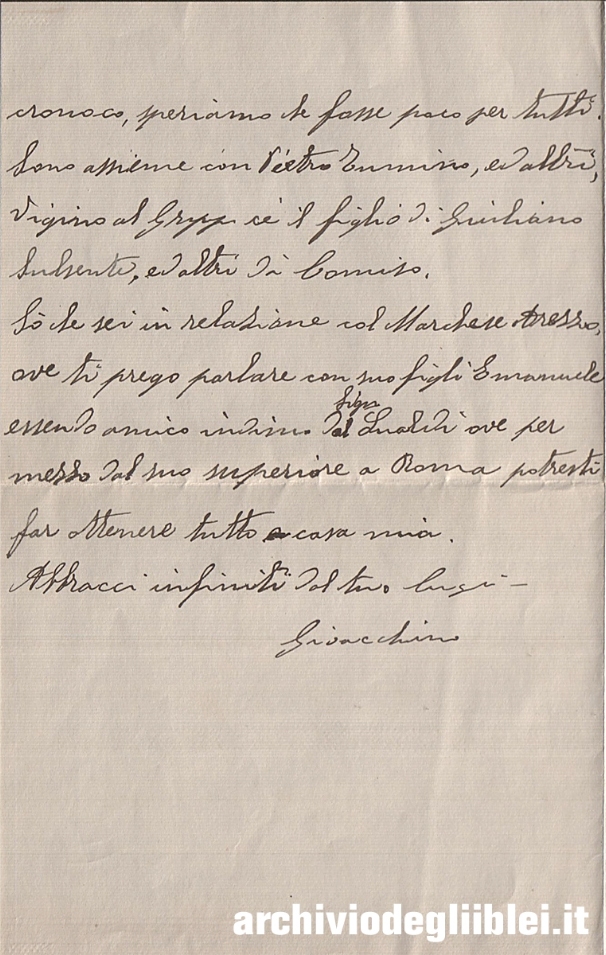 cronoco, speriamo che fosse poco per tutti.
Sono assieme con Pietro Iummino, ed altri,
Vigino al Grupp cè il figlio di Giuliano
ed altri di Comiso.
Sò che sei in relazione col Marchese Arezzo,
ove ti prego parlare con suo figli Emanuele
essendo amico indimo del Sigr Lualdi ove per
mezzo dal suo superiore a Roma potresti
far ottenere tutto a casa mia.
Abbracci infiniti dal tuo Cugi-
Gioacchino
archiviodegliiblei.it